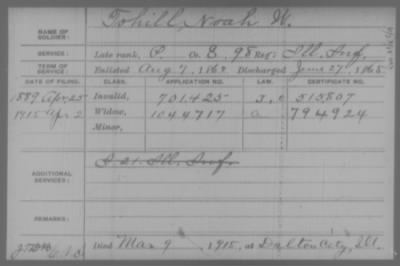 NAME OF SOLDIER: Tohill, Noah W.
SERVICE: Late rank, P. Co. E, 98 Reg't Ill. Inf.
TERM OF SERVICE: Enlisted Aug 7, 1862 Discharged June 27, 1865
DATE OF FILING. CLASS. APPLICATION NO. LAW. CERTIFICATE NO.
1889 Apr 25 Invalid, 701425 515807
1915 Apr 2 Widow, 1044717 a 794924
Minor,
ADDITIONAL SERVICES: I. 21. Ill. Inf.
REMARKS:
Died Mar 9 1915, at Dalton City, Ill.